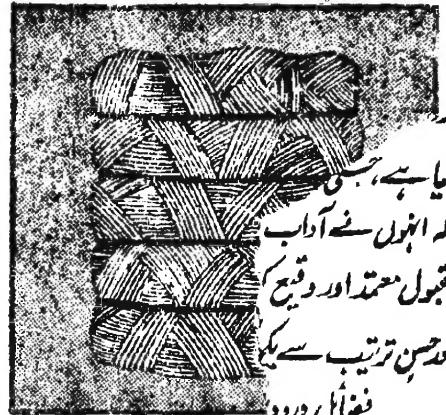 ہے، جسکی
انہوں نے آداب
مقبول معتمد اور وقیع
حسن ترتیب سے
فضائل درود